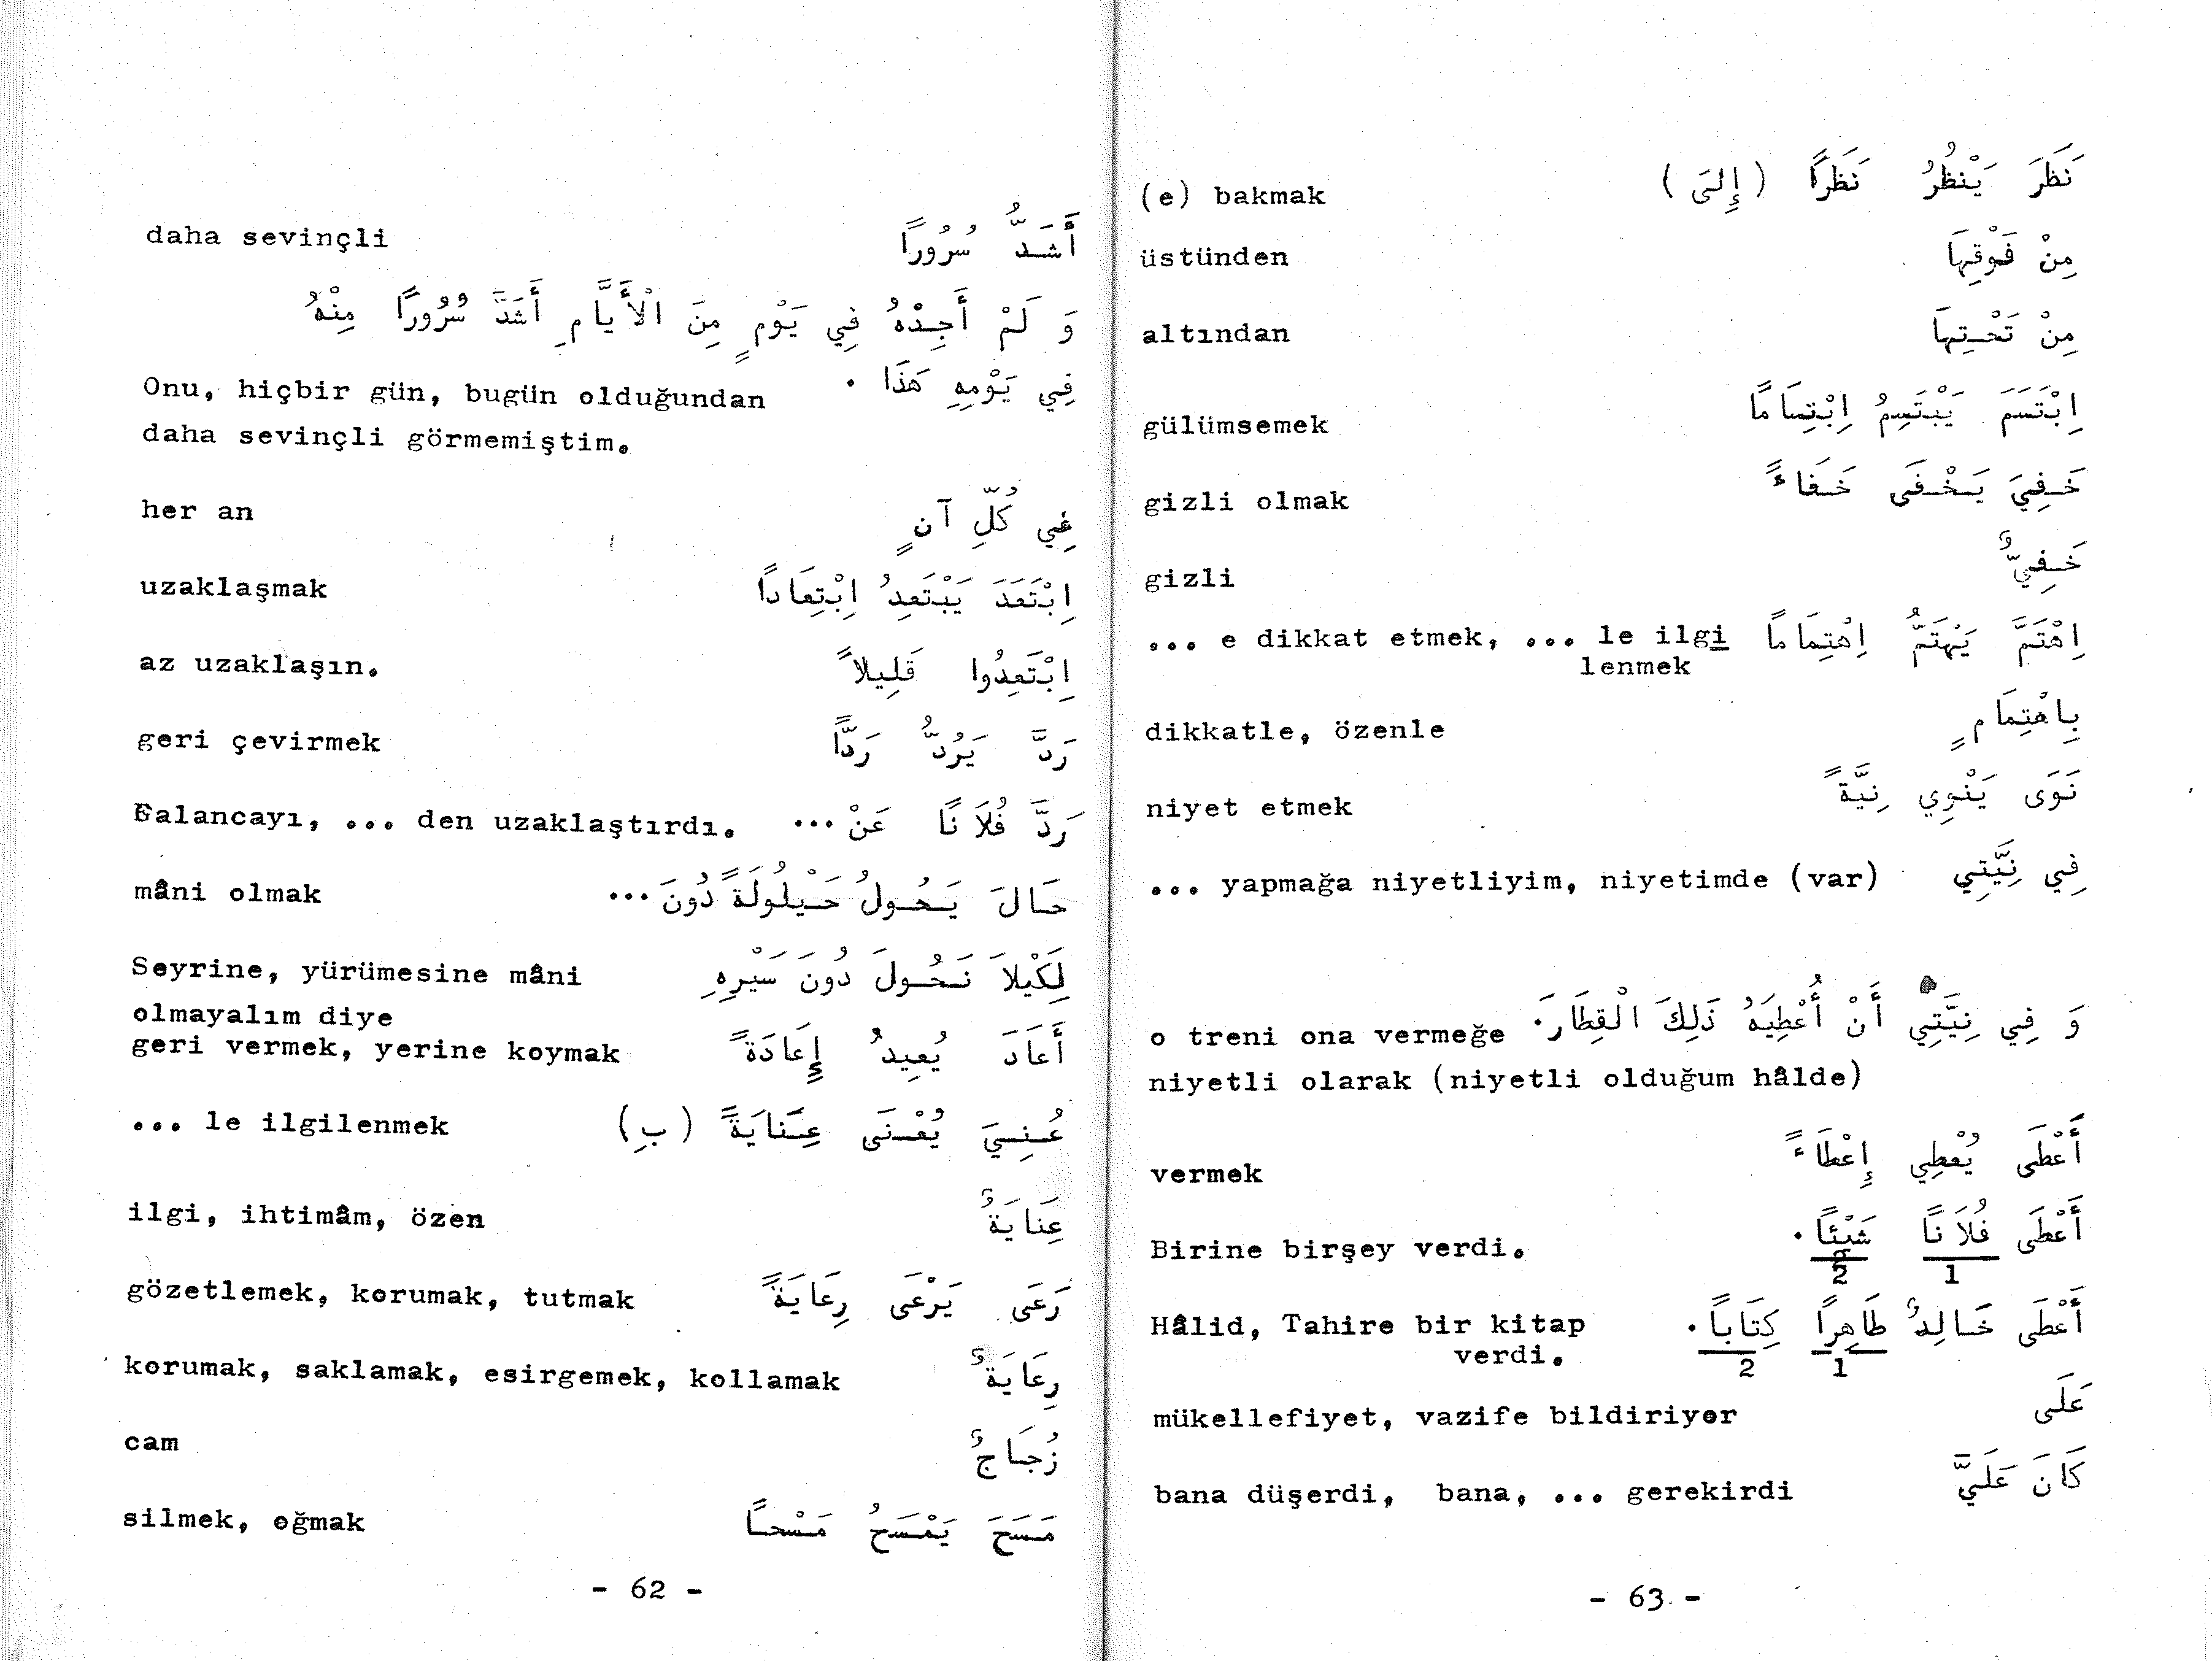 daha sevinçli أَشَدُّ سُرُورًا
وَ لَمْ أَجِدْهُ فِي يَوْمٍ مِنَ الْأَيَّامِ أَشَدَّ سُرُورًا مِنْهُ
فِي يَوْمِهِ هَذَا .
Onu, hiçbir gün, bugün olduğundan
daha sevinçli görmemiştim.
her an فِي كُلِّ آنٍ
uzaklaşmak اِبْتَعَدَ يَبْتَعِدُ اِبْتِعَادًا
az uzaklaşın. اِبْتَعِدُوا قَلِيلاً
geri çevirmek رَدَّ يَرُدُّ رَدًّا
Falancayı, ... den uzaklaştırdı. رَدَّ فُلَانًا عَنْ ...
mâni olmak حَالَ يَحُولُ حَيْلُولَةً دُونَ ...
Seyrine, yürümesine mâni لِكَيْلاَ نَحُولَ دُونَ سَيْرِهِ
olmayalım diye
geri vermek, yerine koymak أَعَادَ يُعِيدُ إِعَادَةً
... le ilgilenmek عُنِيَ يُعْنَى عِنَايَةً (بِ)
ilgi, ihtimâm, özen عِنَايَةٌ
gözetlemek, korumak, tutmak رَعَى يَرْعَى رِعَايَةً
korumak, saklamak, esirgemek, kollamak رِعَايَةٌ
cam زُجَاجٌ
silmek, oğmak مَسَحَ يَمْسَحُ مَسْحًا
- 62 -
(e) bakmak نَظَرَ يَنْظُرُ نَظَرًا (إِلَى)
üstünden مِنْ فَوْقِهَا
altından مِنْ تَحْتِهَا
gülümsemek اِبْتَسَمَ يَبْتَسِمُ اِبْتِسَامًا
gizli olmak خَفِيَ يَخْفَى خَفَاءً
gizli خَفِيٌّ
... e dikkat etmek, ... le ilgi اِهْتَمَّ يَهْتَمُّ اِهْتِمَامًا
lenmek
dikkatle, özenle بِاهْتِمَامٍ
niyet etmek نَوَى يَنْوِي نِيَّةً
... yapmağa niyetliyim, niyetimde (var) فِي نِيَّتِي
o treni ona vermeğe وَ فِي نِيَّتِي أَنْ أُعْطِيَهُ ذَلِكَ الْقِطَارَ.
niyetli olarak (niyetli olduğum hâlde)
vermek أَعْطَى يُعْطِي إِعْطَاءً
Birine birşey verdi. أَعْطَى فُلَانًا شَيْئًا.
2 1
Hâlid, Tahire bir kitap أَعْطَى خَالِدٌ طَاهِرًا كِتَابًا.
verdi. 2 1
mükellefiyet, vazife bildiriyor عَلَى
bana düşerdi, bana, ... gerekirdi كَانَ عَلَيَّ
- 63 -